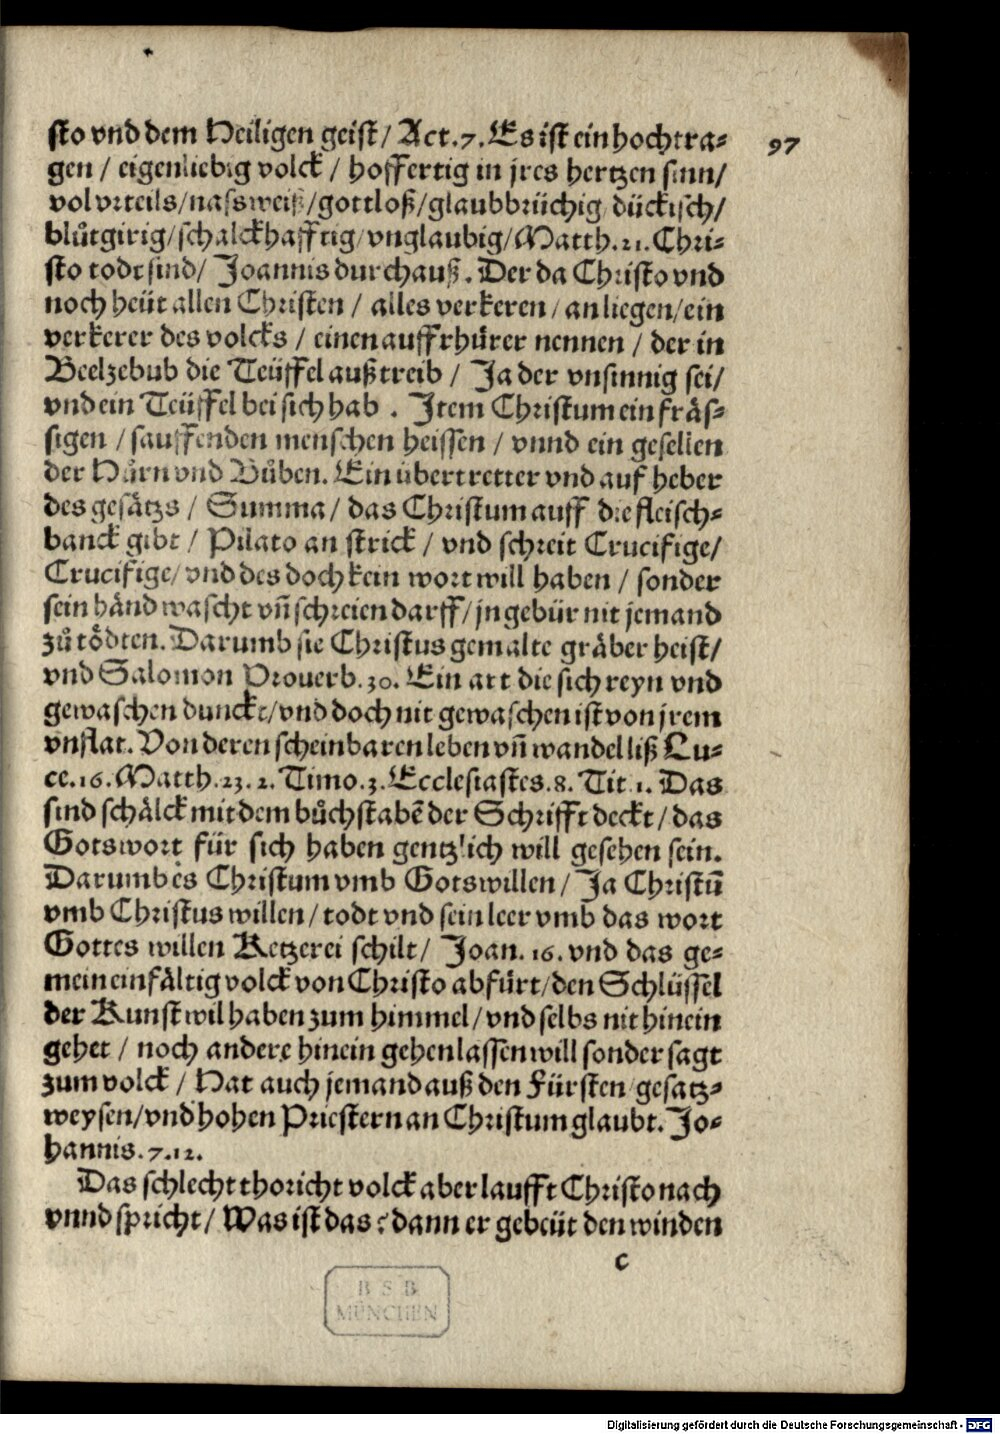 sto vnd dem Heiligen geist / Act. 7. Es ist ein hochtra⸗
97
gen / eigenliebig volck / hoffertig in jres hertzen sinn /
vol vrteils / nassweiß / gottloß / glaubbrüchig / dückisch /
blůtgirig / schalckhafftig / vnglaubig / Matth. 21. Chri⸗
sto todt sind / Joannis durchauß. Der da Christo vnd
noch heüt allen Christen / alles verkeren / an liegen / ein
verkerer des volcks / einen auffrhůrer nennen / der in
Beelzebub die Teüffel außtreib / Ja der vnsinnig sei /
vnd ein Teüffel bei sich hab. Item Christum ein fräs⸗
sigen / sauffenden menschen heissen / vnnd ein gesellen
der Hůrn vnd Bůben. Ein übertretter vnd auf heber
des gesätzs / Summa / das Christum auff die fleisch⸗
banck gibt / Pilato an strick / vnd schreit Crucifige /
Crucifige / vnd des doch kein wort will haben / sonder
sein händ wascht vñ schreien darff / jn gebür nit jemand
zů tödten. Darumb sie Christus gemalte gräber heist /
vnd Salomon Prouerb. 30. Ein art die sich reyn vnd
gewaschen dunckt / vnd doch nit gewaschen ist von jrem
vnflat. Von deren scheinbaren leben vñ wandel liß Lu⸗
ce. 16. Matth. 23. 2. Timo. 3. Ecclesiastes. 8. Tit. 1. Das
sind schälck mit dem bůchstabē der Schrifft deckt / das
Gotswort für sich haben gentzlich will gesehen sein.
Darumb es Christum vmb Gotswillen / Ja Christū
vmb Christus willen / todt vnd sein leer vmb das wort
Gottes willen Ketzerei schilt / Joan. 16. vnd das ge⸗
mein einfältig volck von Christo abfürt / den Schlüssel
der Kunst wil haben zum himmel / vnd selbs nit hinein
gehet / noch andere hinein gehen lassen will sonder sagt
zum volck / Hat auch jemand auß den Fürsten / gesatz⸗
weysen / vnd hohen Priestern an Christum glaubt. Jo⸗
hannis. 7. 12.
Das schlecht thoricht volck aber laufft Christo nach
vnnd spricht / Was ist das? dann er gebeüt den winden
c
B S B
MÜNCHEN
Digitalisierung gefördert durch die Deutsche Forschungsgemeinschaft - DFG